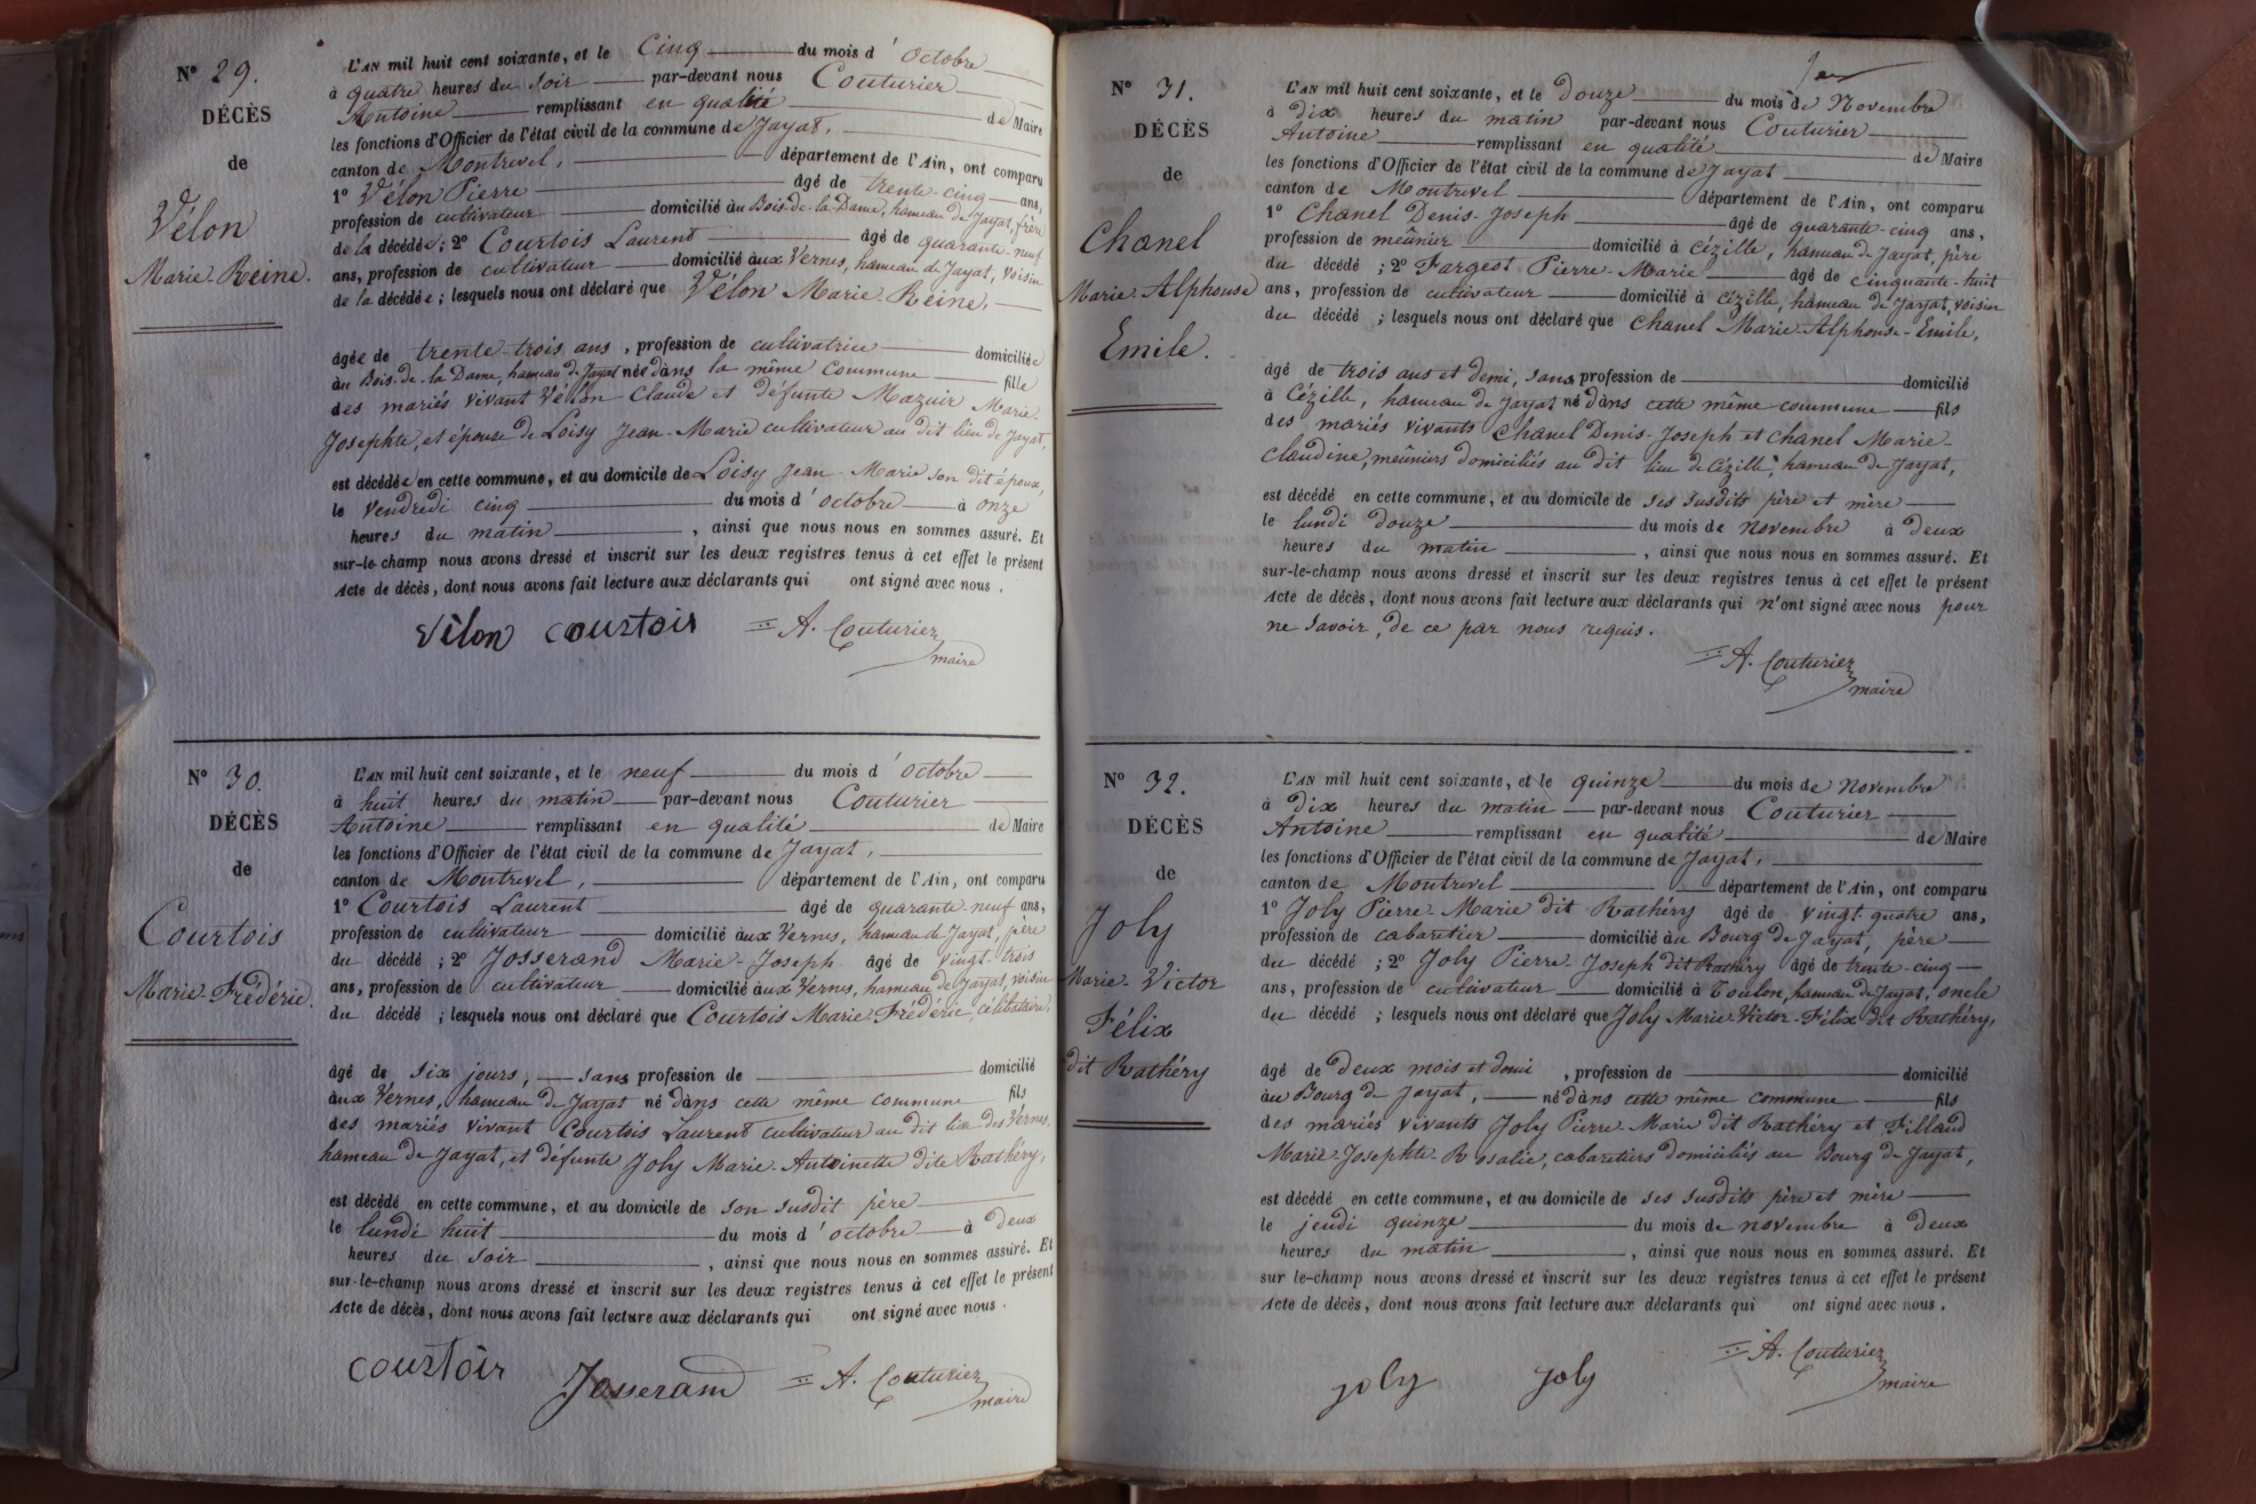 N° 29.
DÉCÈS
de
Vélon
Marie-Reine.
L'AN mil huit cent soixante, et le Cinq du mois d'Octobre
à quatre heures du soir par-devant nous Couturier
Antoine remplissant en qualité de Maire
les fonctions d'Officier de l'état civil de la commune de Jayat,
canton de Montrevel, département de l'Ain, ont comparu
1° Vélon Pierre âgé de trente-cinq ans,
profession de cultivateur domicilié au Bois-de-la-Dame, hameau de Jayat, frère
de la décédée; 2° Courtois Laurent âgé de quarante-neuf
ans, profession de cultivateur domicilié aux Vernes, hameau de Jayat, voisin
de la décédée; lesquels nous ont déclaré que Vélon Marie-Reine,
âgée de trente-trois ans, profession de cultivatrice domiciliée
au Bois-de-la Dame, hameau de Jayat née dans la même commune fille
des mariés vivant Vélon Claude et défunte Mazuir Marie-
Josephte, et épouse de Loisy Jean-Marie cultivateur au dit lieu de Jayat,
est décédée en cette commune, et au domicile de Loisy Jean-Marie son dit époux,
le vendredi cinq du mois d'octobre à onze
heures du matin, ainsi que nous nous en sommes assuré. Et
sur-le-champ nous avons dressé et inscrit sur les deux registres tenus à cet effet le présent
Acte de décès, dont nous avons fait lecture aux déclarants qui ont signé avec nous.
Vélon Courtois A. Couturier
maire
N° 30.
DÉCÈS
de
Courtois
Marie-Frédéric.
L'AN mil huit cent soixante, et le neuf du mois d'octobre
à huit heures du matin par-devant nous Couturier
Antoine remplissant en qualité de Maire
les fonctions d'Officier de l'état civil de la commune de Jayat,
canton de Montrevel, département de l'Ain, ont comparu
1° Courtois Laurent âgé de quarante-neuf ans,
profession de cultivateur domicilié aux Vernes, hameau de Jayat, père
du décédé; 2° Josserand Marie-Joseph âgé de vingt-trois
ans, profession de cultivateur domicilié aux Vernes, hameau de Jayat, voisin
du décédé; lesquels nous ont déclaré que Courtois Marie-Frédéric, célibataire,
âgé de six jours, sans profession de domicilié
aux Vernes, hameau de Jayat né dans cette même commune fils
des mariés vivant Courtois Laurent cultivateur au dit lieu des Vernes,
hameau de Jayat, et défunte Joly Marie-Antoinette dite Rathéry,
est décédé en cette commune, et au domicile de son susdit père
le lundi huit du mois d'octobre à deux
heures du soir, ainsi que nous nous en sommes assuré. Et
sur-le-champ nous avons dressé et inscrit sur les deux registres tenus à cet effet le présent
Acte de décès, dont nous avons fait lecture aux déclarants qui ont signé avec nous.
Courtois Josserand A. Couturier
maire
N° 31.
DÉCÈS
de
Chanel
Marie-Alphonse
Emile.
L'AN mil huit cent soixante, et le douze du mois de Novembre
à dix heures du matin par-devant nous Couturier
Antoine remplissant en qualité de Maire
les fonctions d'Officier de l'état civil de la commune de Jayat
canton de Montrevel département de l'Ain, ont comparu
1° Chanel Denis-Joseph âgé de quarante-cinq ans,
profession de meûnier domicilié à Cézille, hameau de Jayat, père
du décédé; 2° Fargeot Pierre-Marie âgé de cinquante-huit
ans, profession de cultivateur domicilié à Cézille, hameau de Jayat, voisin
du décédé; lesquels nous ont déclaré que Chanel Marie-Alphonse-Emile,
âgé de trois ans et demi, sans profession de domicilié
à Cézille, hameau de Jayat né dans cette même commune fils
des mariés vivants Chanel Denis-Joseph et Chanel Marie-
Claudine, meûniers domiciliés au dit lieu de Cézille, hameau de Jayat,
est décédé en cette commune, et au domicile de ses susdits père et mère
le lundi douze du mois de novembre à deux
heures du matin, ainsi que nous nous en sommes assuré. Et
sur-le-champ nous avons dressé et inscrit sur les deux registres tenus à cet effet le présent
Acte de décès, dont nous avons fait lecture aux déclarants qui n'ont signé avec nous pour
ne savoir, de ce par nous requis.
A. Couturier
maire
N° 32.
DÉCÈS
de
Joly
Marie-Victor
Félix
dit Rathéry
L'AN mil huit cent soixante, et le quinze du mois de novembre
à dix heures du matin par-devant nous Couturier
Antoine remplissant en qualité de Maire
les fonctions d'Officier de l'état civil de la commune de Jayat,
canton de Montrevel département de l'Ain, ont comparu
1° Joly Pierre-Marie dit Rathéry âgé de vingt-quatre ans,
profession de cabaretier domicilié au Bourg de Jayat, père
du décédé; 2° Joly Pierre-Joseph dit Rathéry âgé de trente-cinq
ans, profession de cultivateur domicilié à Toulon, hameau de Jayat, oncle
du décédé; lesquels nous ont déclaré que Joly Marie-Victor-Félix dit Rathéry,
âgé de deux mois et demi, profession de domicilié
au Bourg de Jayat, né dans cette même commune fils
des mariés vivants Joly Pierre-Marie dit Rathéry et Fillaud
Marie-Josephte-Rosalie, cabaretiers domiciliés au Bourg de Jayat,
est décédé en cette commune, et au domicile de ses susdits père et mère
le jeudi quinze du mois de novembre à deux
heures du matin, ainsi que nous nous en sommes assuré. Et
sur le-champ nous avons dressé et inscrit sur les deux registres tenus à cet effet le présent
Acte de décès, dont nous avons fait lecture aux déclarants qui ont signé avec nous.
joly joly A. Couturier
maire